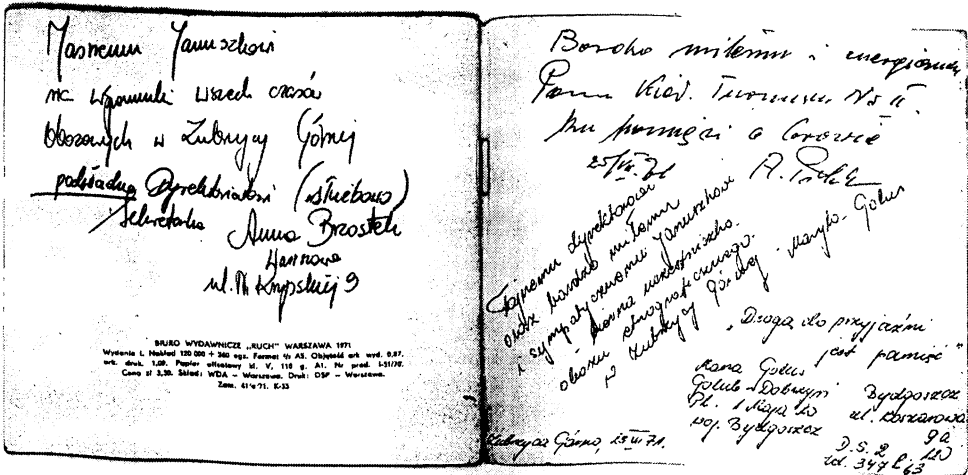 Masnemu Januszkowi
na wspominki wszech czasów
obozowych w Zubrzycy Górnej
podwładna Dyrektorialori (służbowo)
Sekretarka Anna Brzostek
Warszawa
ul. M Krypskiej 9
BIURO WYDAWNICZE „RUCH" WARSZAWA 1971
Wydanie I. Nakład 120 000 + 260 egz. Format ⅙ A5. Objętość ark. wyd. 0,87,
ark. druk. 1,09. Papier offsetowy kl. V, 110 g. A1. Nr prod. I-51/70.
Cena zł 3,50. Skład: WDA — Warszawa. Druk: DSP — Warszawa.
Zam. K-53
Bardzo miłemu i energicznemu
Panu Kier. Turnusu Nr II.
ku pamięci o
25/VII.71
Fajnemu dyrektorowi
oraz bardzo miłemu
i sympatycznemu Januszkowi
obozu etnograficznego
w Zubrzycy Górnej Maryla Golus
„Drogą do przyjaźni
jest pamięć"
Golus
Golub-Dobrzyń
Pl. 1 Maja 20
woj. Bydgoszcz
Bydgoszcz
ul. Koszarowa
9a
D.S. 2
tel. 347
63
Zubrzyca Górna, 25 VII 71.